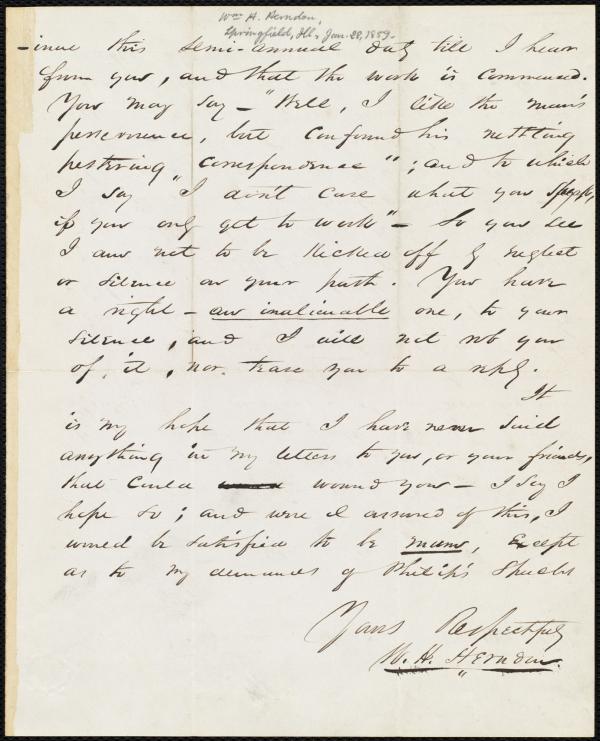 Wm H. Herndon,
Springfield, Ill., Jan. 28, 1859.
-inue this semi-annual duty till I hear
from you, and that the work is commenced.
You may say - "Well, I like the man's
perseverence, but confound his nettling
pestering correspondence"; and to which
I say "I don't care what you say,
if you only get to work" - So you see
I am not to be kicked off by neglect
or silence on your part. You have
a right - an inalienable one, to your
silence, and I will not rob you
of it, nor tease you to a reply.
It
is my hope that I have never said
anything in my letters to you, or your friends,
that could wound you - I say I
hope so; and were I assured of this, I
would be satisfied to be mum, Except
as to my demands of Philip's Speeches
Yours Respectfully
W. H. Herndon.